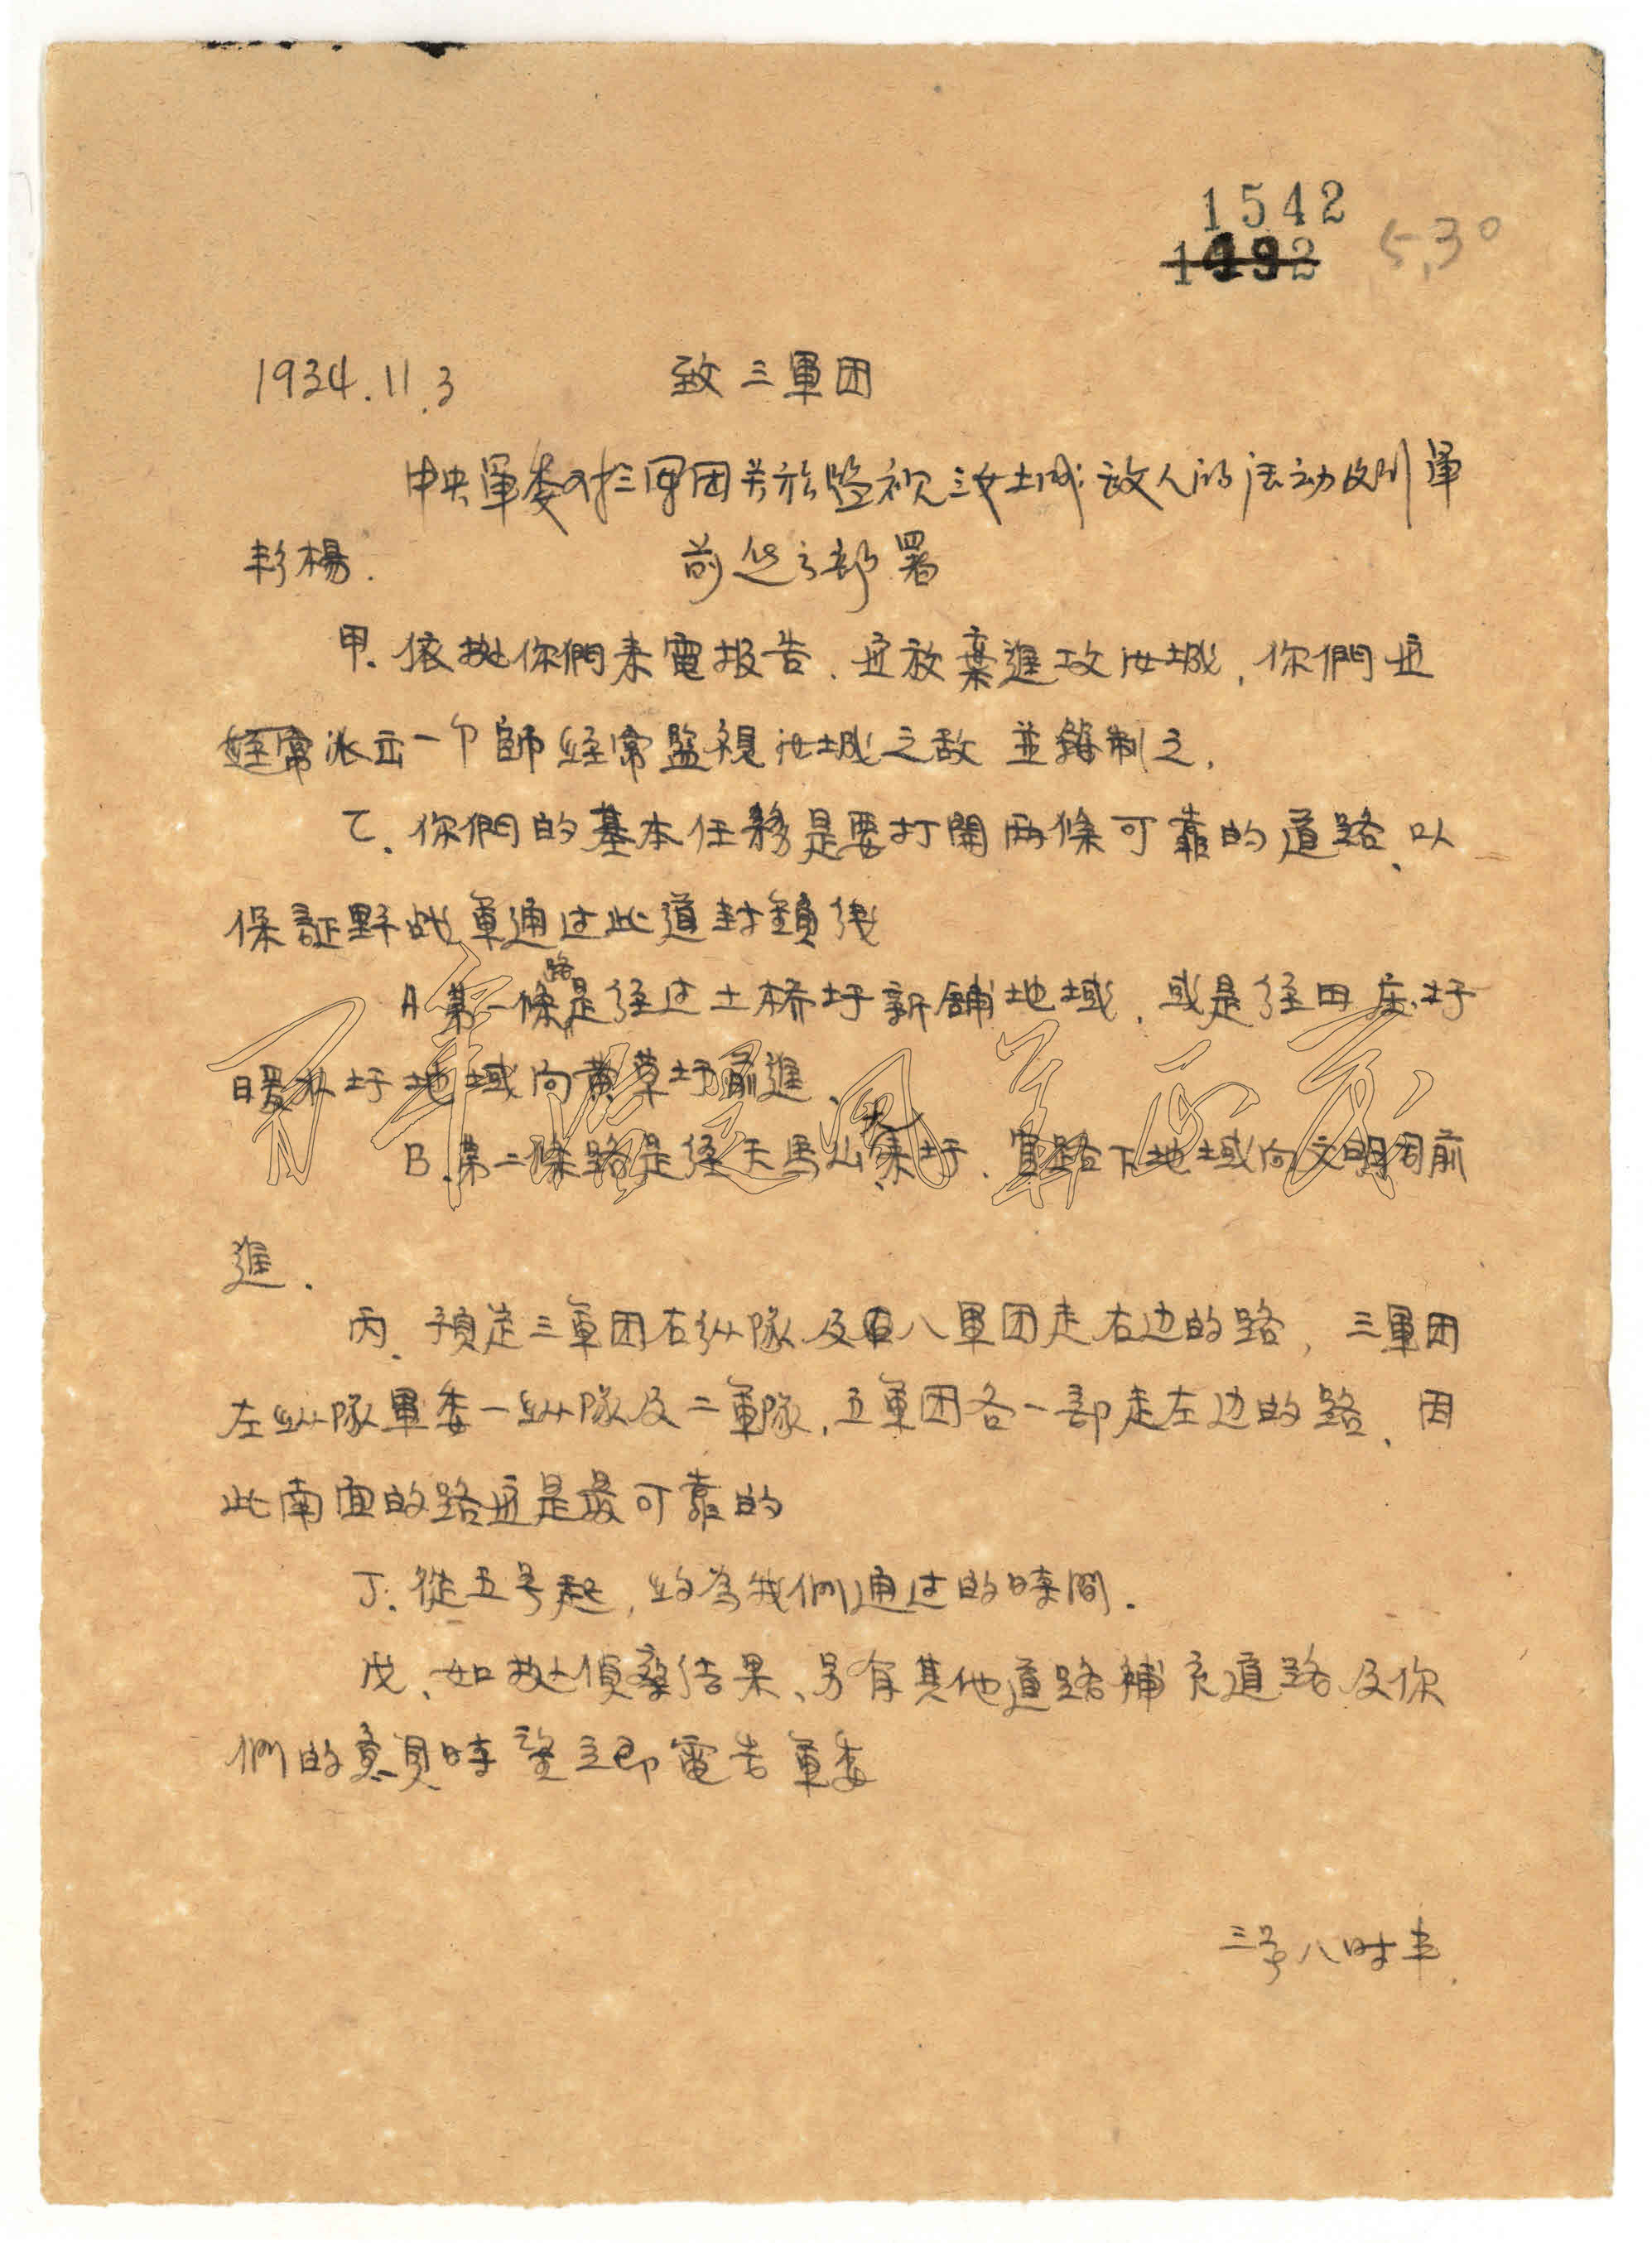 1542
1932 5,30
1934.11.3 致三軍团
中央軍委对三軍团关於监视汝城敌人的活动及川軍
彭楊. 前进之部署
甲、依据你們来電报告、应放棄進攻汝城,你們应
经常派出一个師经常監視汝城之敌並鉗制之,
乙、你們的基本任務是要打開两條可靠的道路、以
保証野战軍通过此道封鎖线
A第一條路是径过土桥圩新舖地域、或是径田庄圩
暖水圩地域向黄草圩前進、
B.第二條路是径天馬山、大来圩、官路下地域向文明司前
進.
丙、預定三軍团右纵隊及八軍团走右边的路,三軍团
左纵隊軍委一纵隊及二軍隊,五軍团各一部走左边的路、因
此南面的路应是最可靠的
丁.從五号起,约為我們通过的時間.
戊、如据偵察结果、另有其他道路補充道路及你
們的意見時望立即電告軍委
三号八时半.